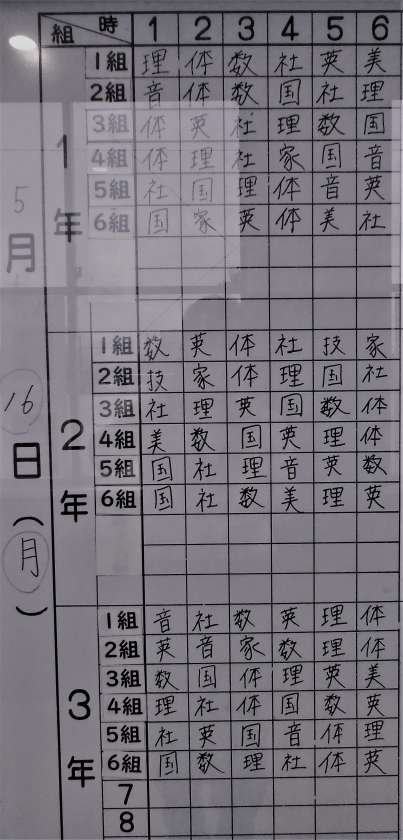 組 時 1 2 3 4 5 6
5月16日(月)
1年
1組 理 体 数 社 英 美
2組 音 体 数 国 社 理
3組 体 英 社 理 数 国
4組 体 理 社 家 国 音
5組 社 国 理 体 音 英
6組 国 家 英 体 美 社
2年
1組 数 英 体 社 技 家
2組 技 家 体 理 国 社
3組 社 理 英 国 数 体
4組 美 数 国 英 理 体
5組 国 社 理 音 英 数
6組 国 社 数 美 理 英
3年
1組 音 社 数 英 理 体
2組 英 音 家 数 理 体
3組 数 国 体 理 英 美
4組 理 社 体 国 数 英
5組 社 英 国 音 体 理
6組 国 数 理 社 体 英
7
8